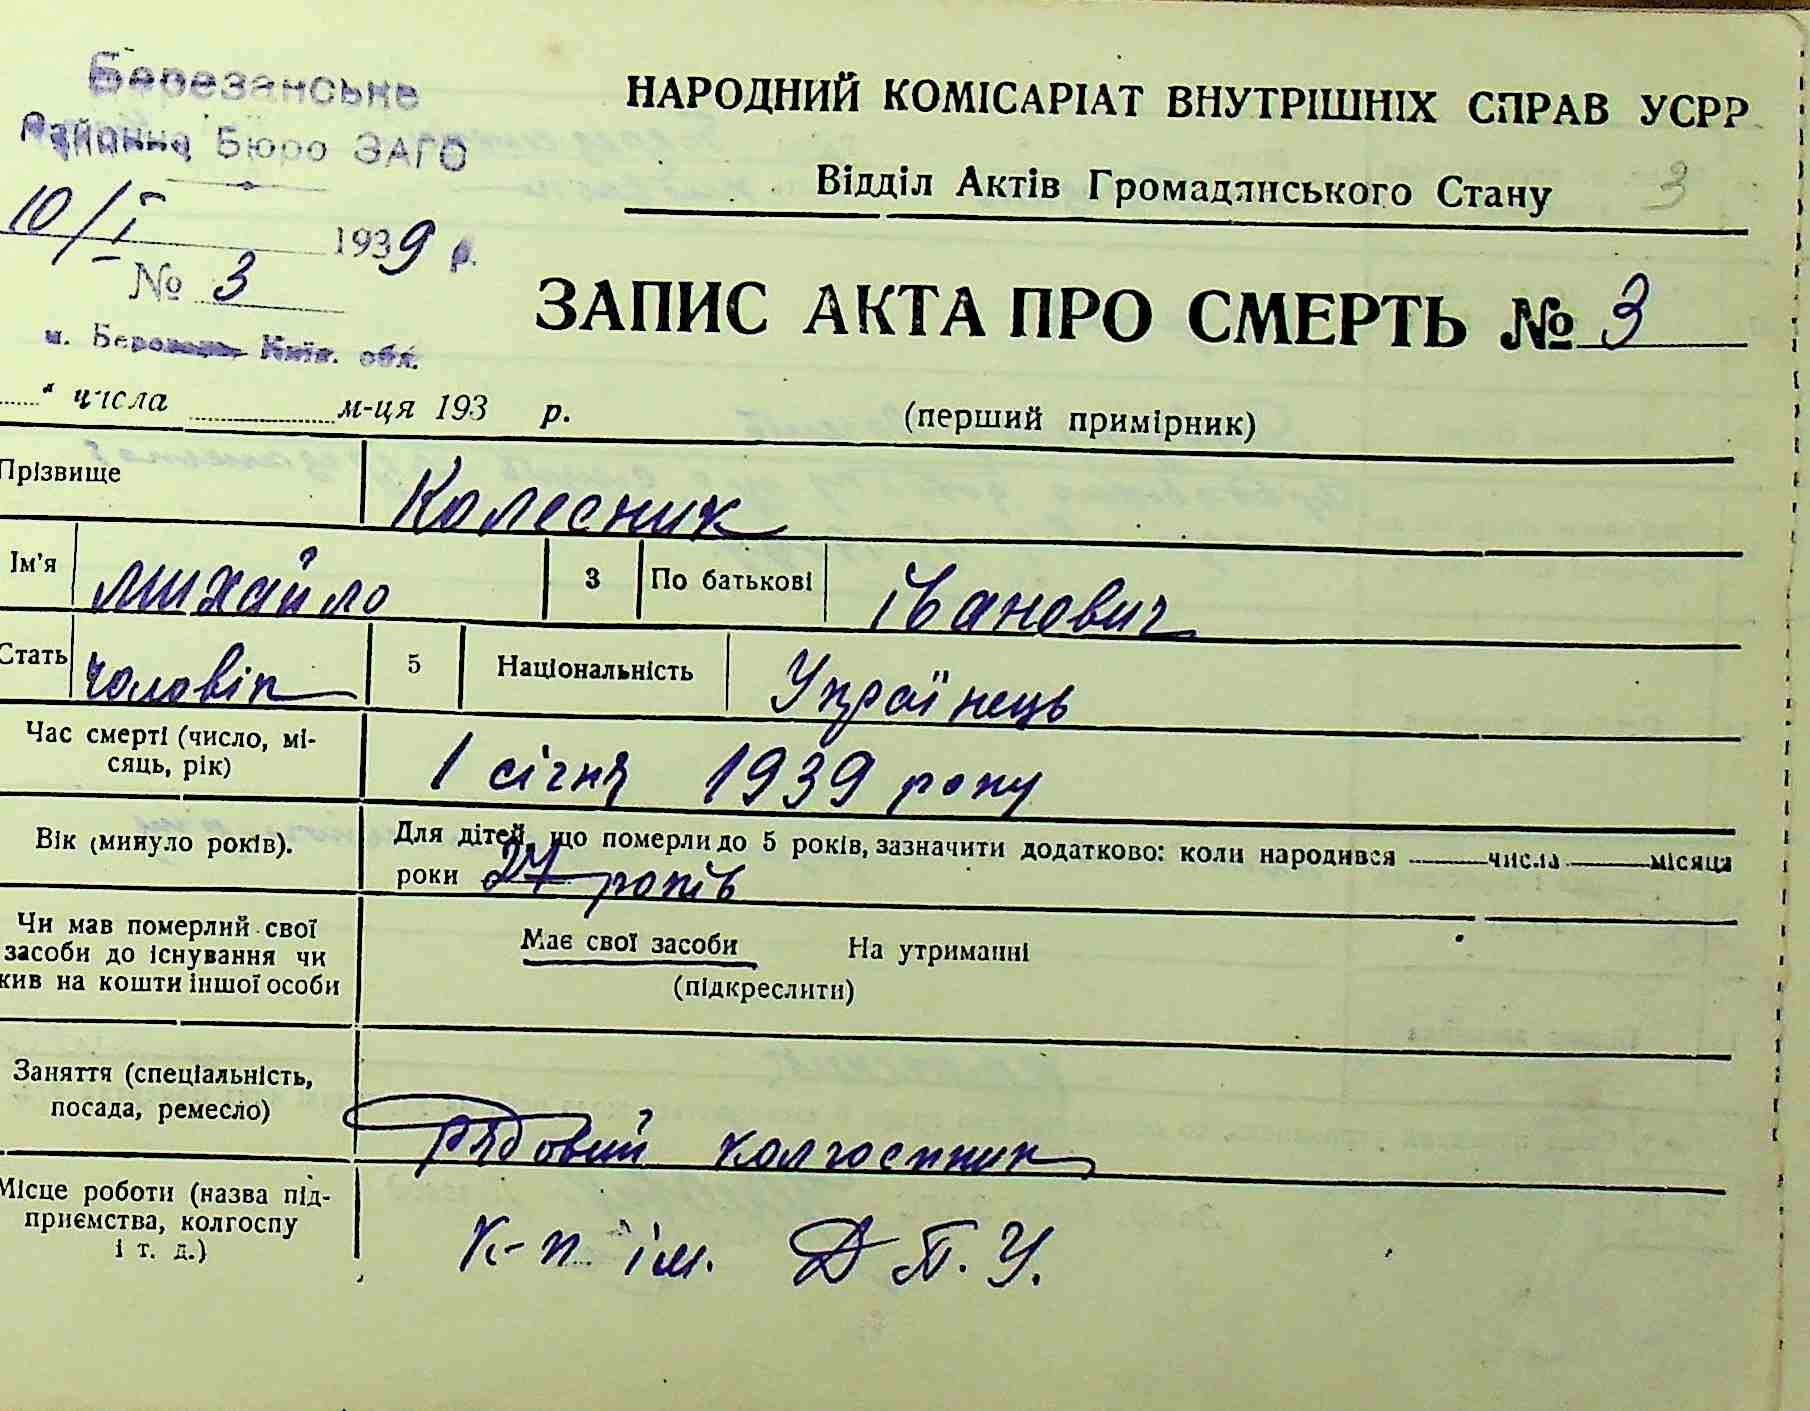 Березанське
Районне Бюро ЗАГС
10/I 1939 р.
№ 3
м. Березань Київ. обл.
НАРОДНИЙ КОМІСАРІАТ ВНУТРІШНІХ СПРАВ УСРР
Відділ Актів Громадянського Стану
3
ЗАПИС АКТА ПРО СМЕРТЬ № 3
" числа м-ця 193 р.
(перший примірник)
Прізвище Колесник
Ім'я Михайло 3 По батькові Іванович
Стать чоловік 5 Національність Українець
Час смерті (число, мі-
сяць, рік)
1 січня 1939 року
Вік (минуло років).
Для дітей, що померли до 5 років, зазначити додатково: коли народився — числа — місяця
роки 27 років
Чи мав померлий свої
засоби до існування чи
жив на кошти іншої особи
Має свої засоби На утриманні
(підкреслити)
Заняття (спеціальність,
посада, ремесло)
рядовий колгоспник
Місце роботи (назва під-
приємства, колгоспу
і т. д.)
к-п ім. Д.П.У.